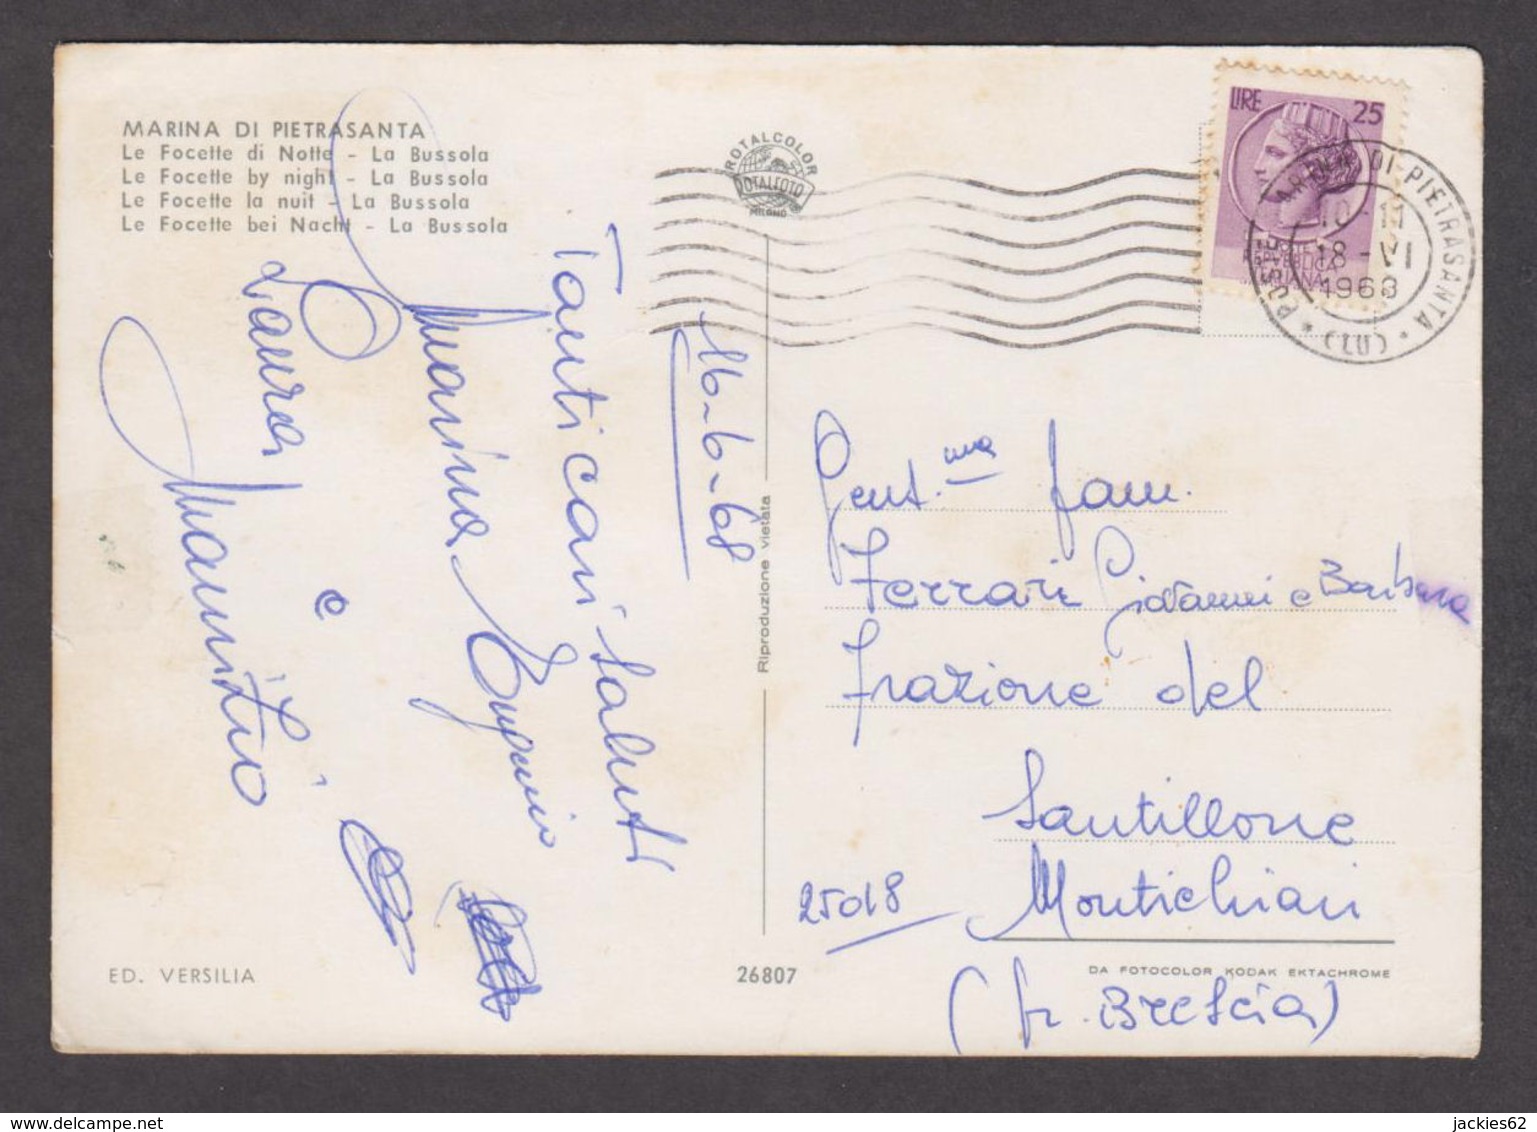 MARINA DI PIETRASANTA
Le Focette di Notte - La Bussola
Le Focette by night - La Bussola
Le Focette la nuit - La Bussola
Le Focette bei Nacht - La Bussola
ROTALCOLOR
ROTALFOTO
MILANO
LIRE 25
REPVBBLICA
ITALIANA
MARINA DI PIETRASANTA (LU)
10-11
18-VI
1968
16-6-68
Tanti cari saluti
Marina Eugenio
Laura
e
Maurizio
Riproduzione vietata
Gent.ma fam.
Ferrari Giovanni e Barbara
frazione del
Santillone
25018 Montichiari
(pr. Brescia)
ED. VERSILIA
26807
DA FOTOCOLOR KODAK EKTACHROME
jackies62